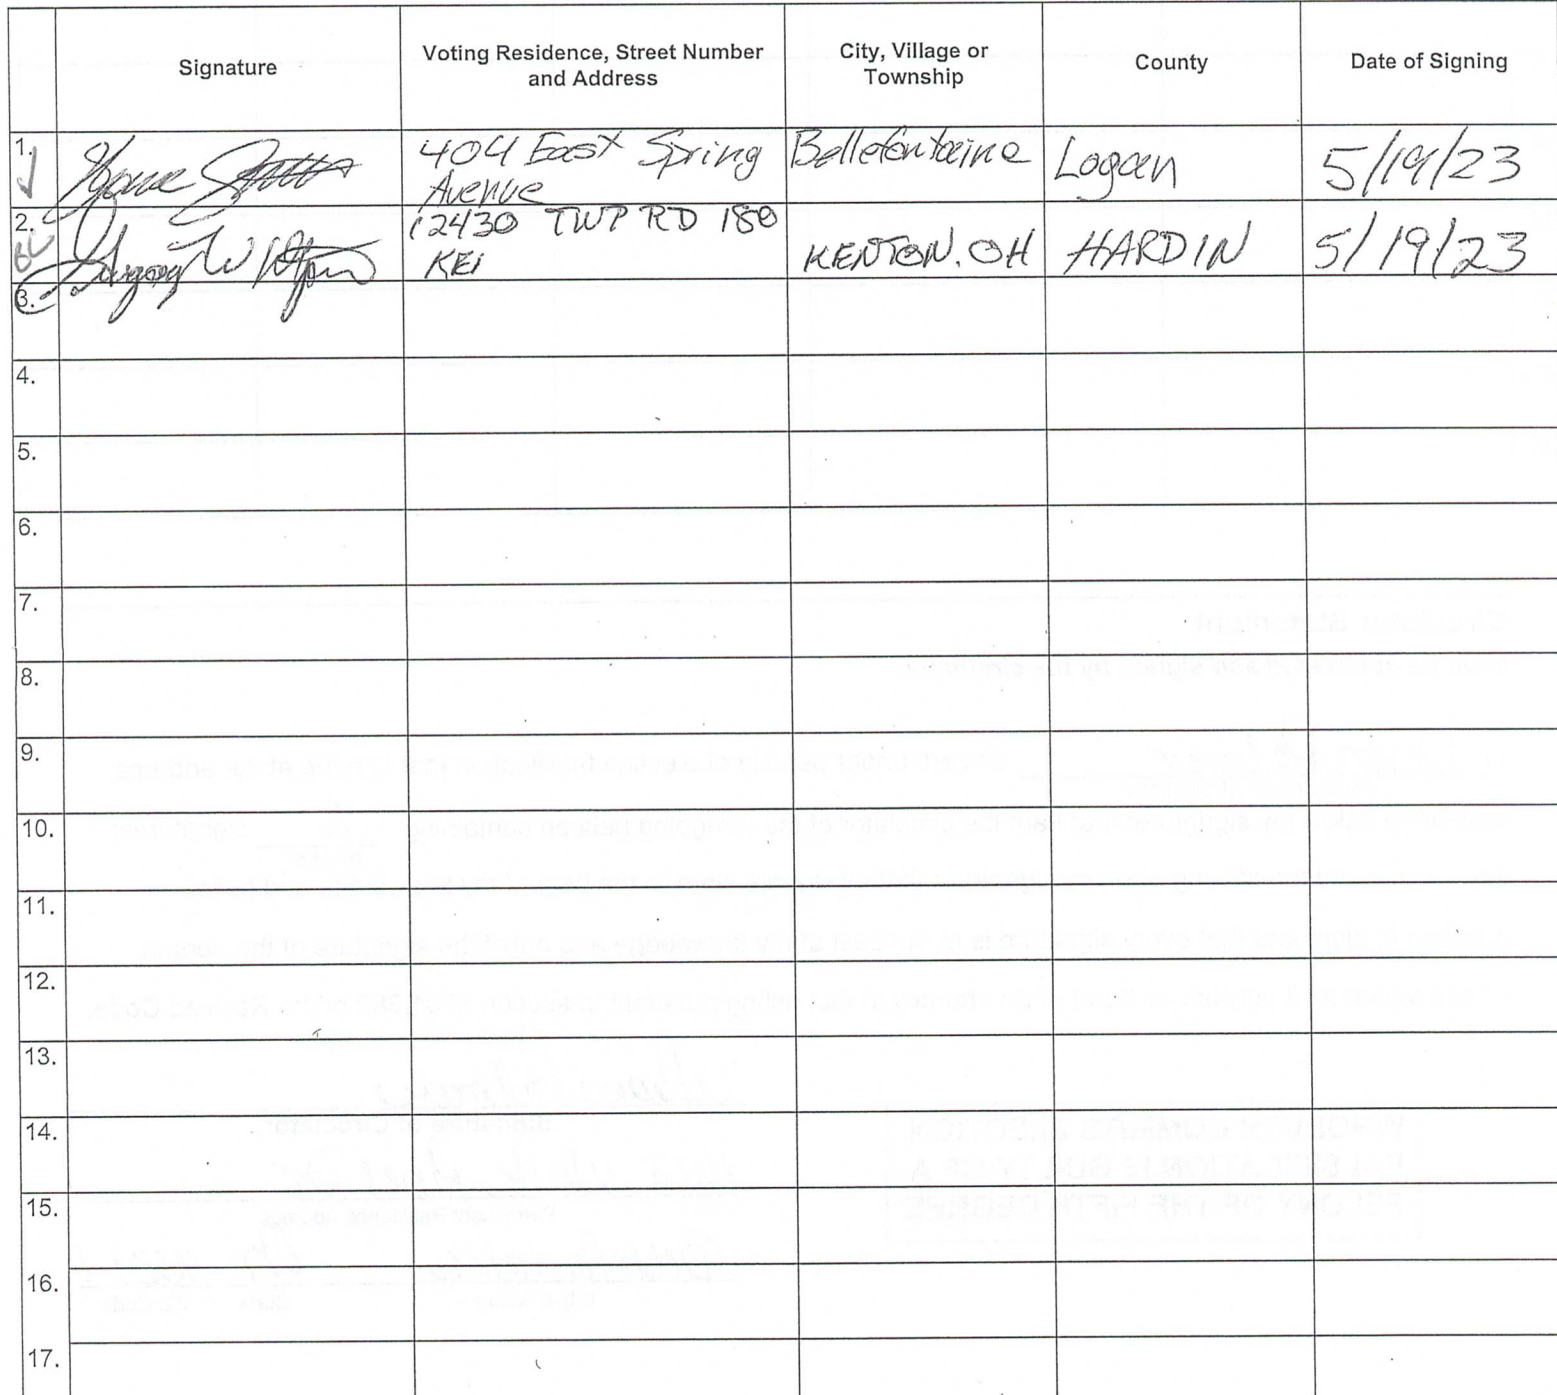 Signature
Voting Residence, Street Number
and Address
City, Village or
Township
County
Date of Signing
1.
404 East Spring
Avenue
Bellefontaine
Logan
5/19/23
2.
12430 TWP RD 180
KEI
KENTON, OH
HARDIN
5/19/23
3.
4.
5.
6.
7.
8.
9.
10.
11.
12.
13.
14.
15.
16.
17.